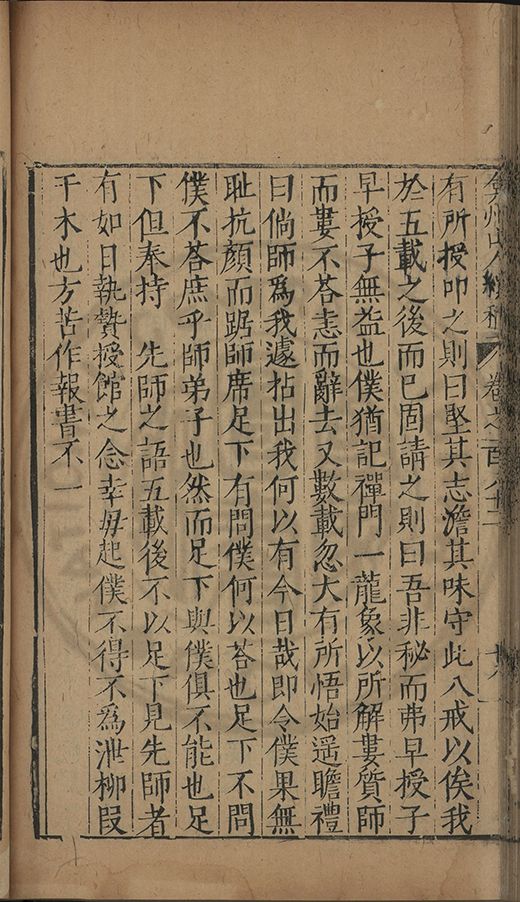 弇州山人續稿 卷之一百八十二 廿八
有所授叩之則曰堅其志澹其味守此八戒以俟我
於五載之後而已固請之則曰吾非秘而弗早授子
早授子無益也僕猶記禪門一龍象以所解屢質師
而屢不荅恚而辭去又數載忽大有所悟始遥瞻禮
曰倘師爲我遽拈出我何以有今日哉即令僕果無
耻抗顏而踞師席足下有問僕何以荅也足下不問
僕不荅庶乎師弟子也然而足下與僕俱不能也足
下但奉持 先師之語五載後不以足下見先師者
有如日執贄授館之念幸毋起僕不得不爲泄柳段
干木也方苦作報書不一